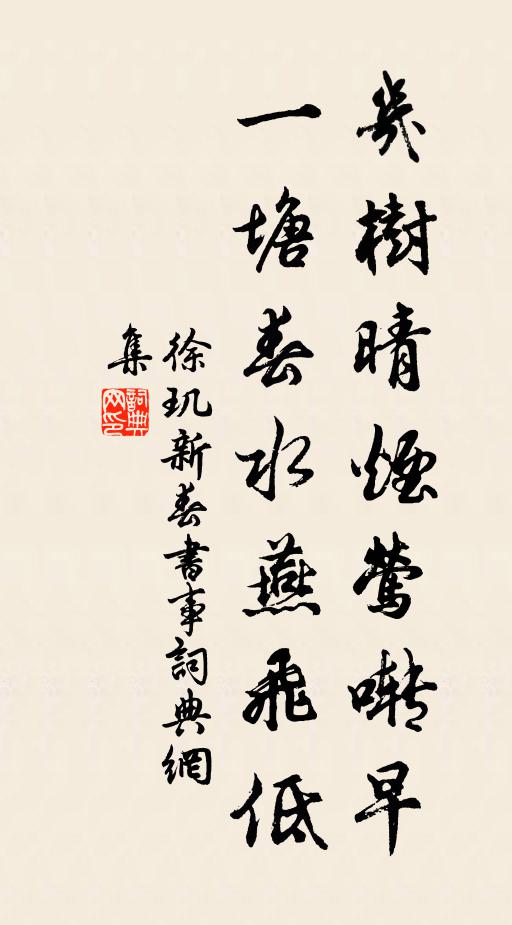 幾樹晴煙鶯囀早
一塘春水燕飛低
徐璣新春書事詞典網
集
詞典
网印